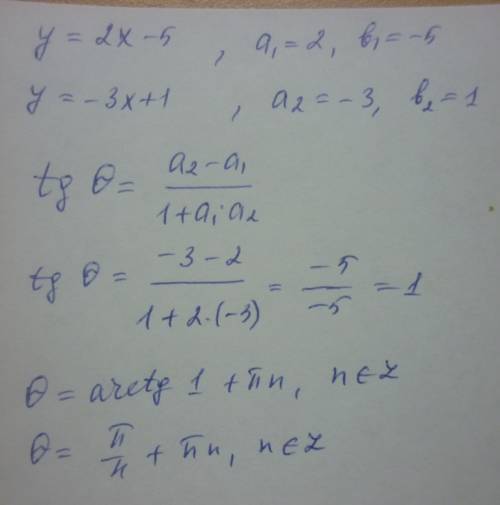 y = 2x - 5 , a₁ = 2, b₁ = -5
y = -3x + 1 , a₂ = -3, b₂ = 1
tg θ = (a₂ - a₁)/(1 + a₁·a₂)
tg θ = (-3 - 2)/(1 + 2·(-3)) = (-5)/(-5) = 1
θ = arctg 1 + πn, n ∈ Z
θ = π/4 + πn, n ∈ Z